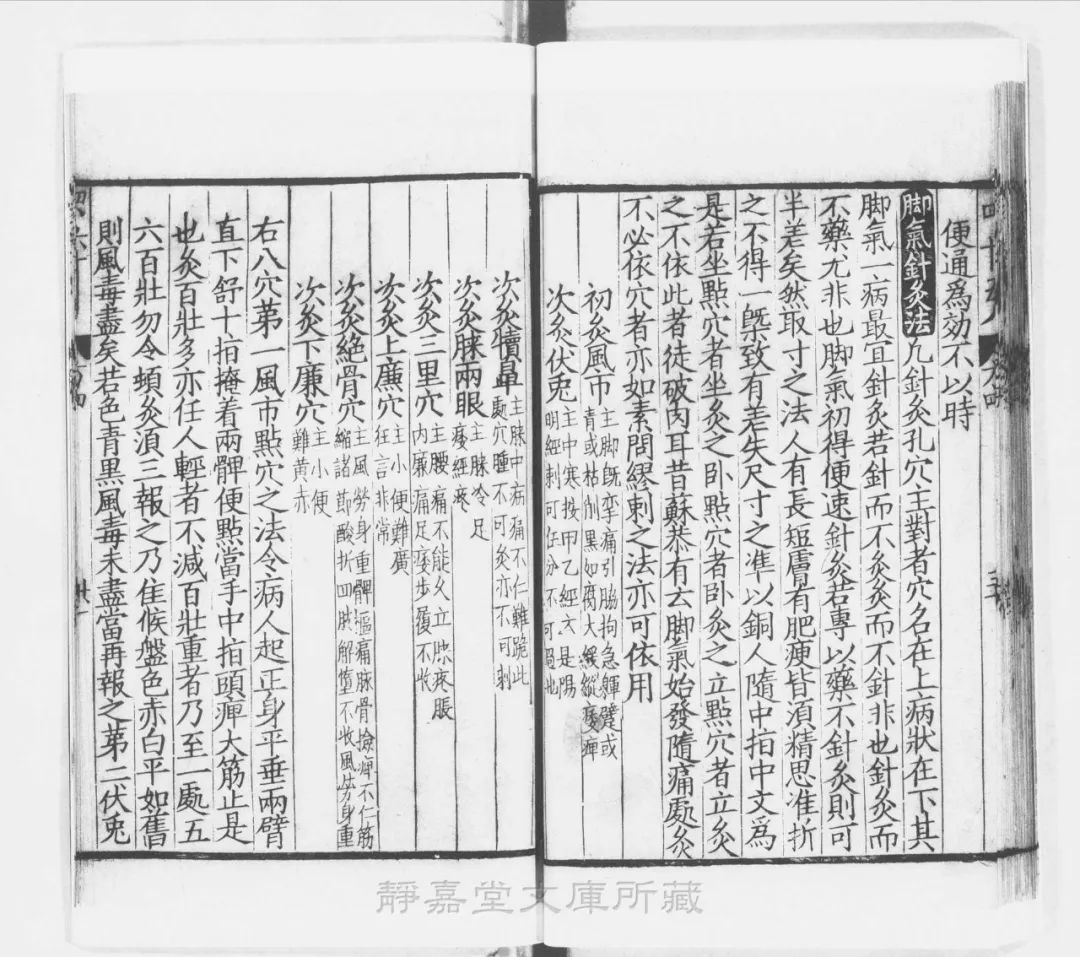 便通爲効不以時
脚氣針灸法凡針灸孔穴主對者穴名在上病狀在下其
脚氣一病最宜針灸若針而不灸灸而不針非也針灸而
不藥尤非也脚氣初得便速針灸若專以藥不針灸則可
半差矣然取寸之法人有長短膚有肥瘦皆湏精思准折
之不得一槩致有差失尺寸之凖以銅人隨中拍中文爲
是若坐點穴者坐灸之卧點穴者卧灸之立點穴者立灸
之不依此者徒破肉耳昔蘇恭有云脚氣始發隨痛處灸
不必依穴者亦如素問繆刺之法亦可依用
初灸風市
主脚旣孿痛引脇拘急軃躄或
青或枯削黑如腐大緩縱痿痺
次灸伏兎
主中寒按甲乙經云是陽
明經刺可任分不可過也
次灸犢鼻
主膝中病痛不仁難跪此
處穴腫不可灸亦不可刺
次灸膝兩眼
主膝冷足
痿經疼
次灸三里穴
主腰痛不能久立膝疼脹
内廉痛足痿步履不收
次灸上廉穴
主小便難廣
狂言非常
次灸絶骨穴
主風勞身重髀樞痛膝骨撿痺不仁筋
縮諸節酸折四肢解墮不收風勞身重
次灸下廉穴
主小便
難黄赤
右八穴苐一風市點穴之法令病人起正身平垂兩臂
直下舒十拍掩着兩髀便點當手中拍頭痺大筋止是
也灸百壯多亦任人輕者不減百壯重者乃至一處五
六百壯勿令頓灸湏三報之乃佳候盤色赤白平如舊
則風毒盡矣若色青黑風毒未盡當再報之苐二伏兎
靜嘉堂文庫所藏